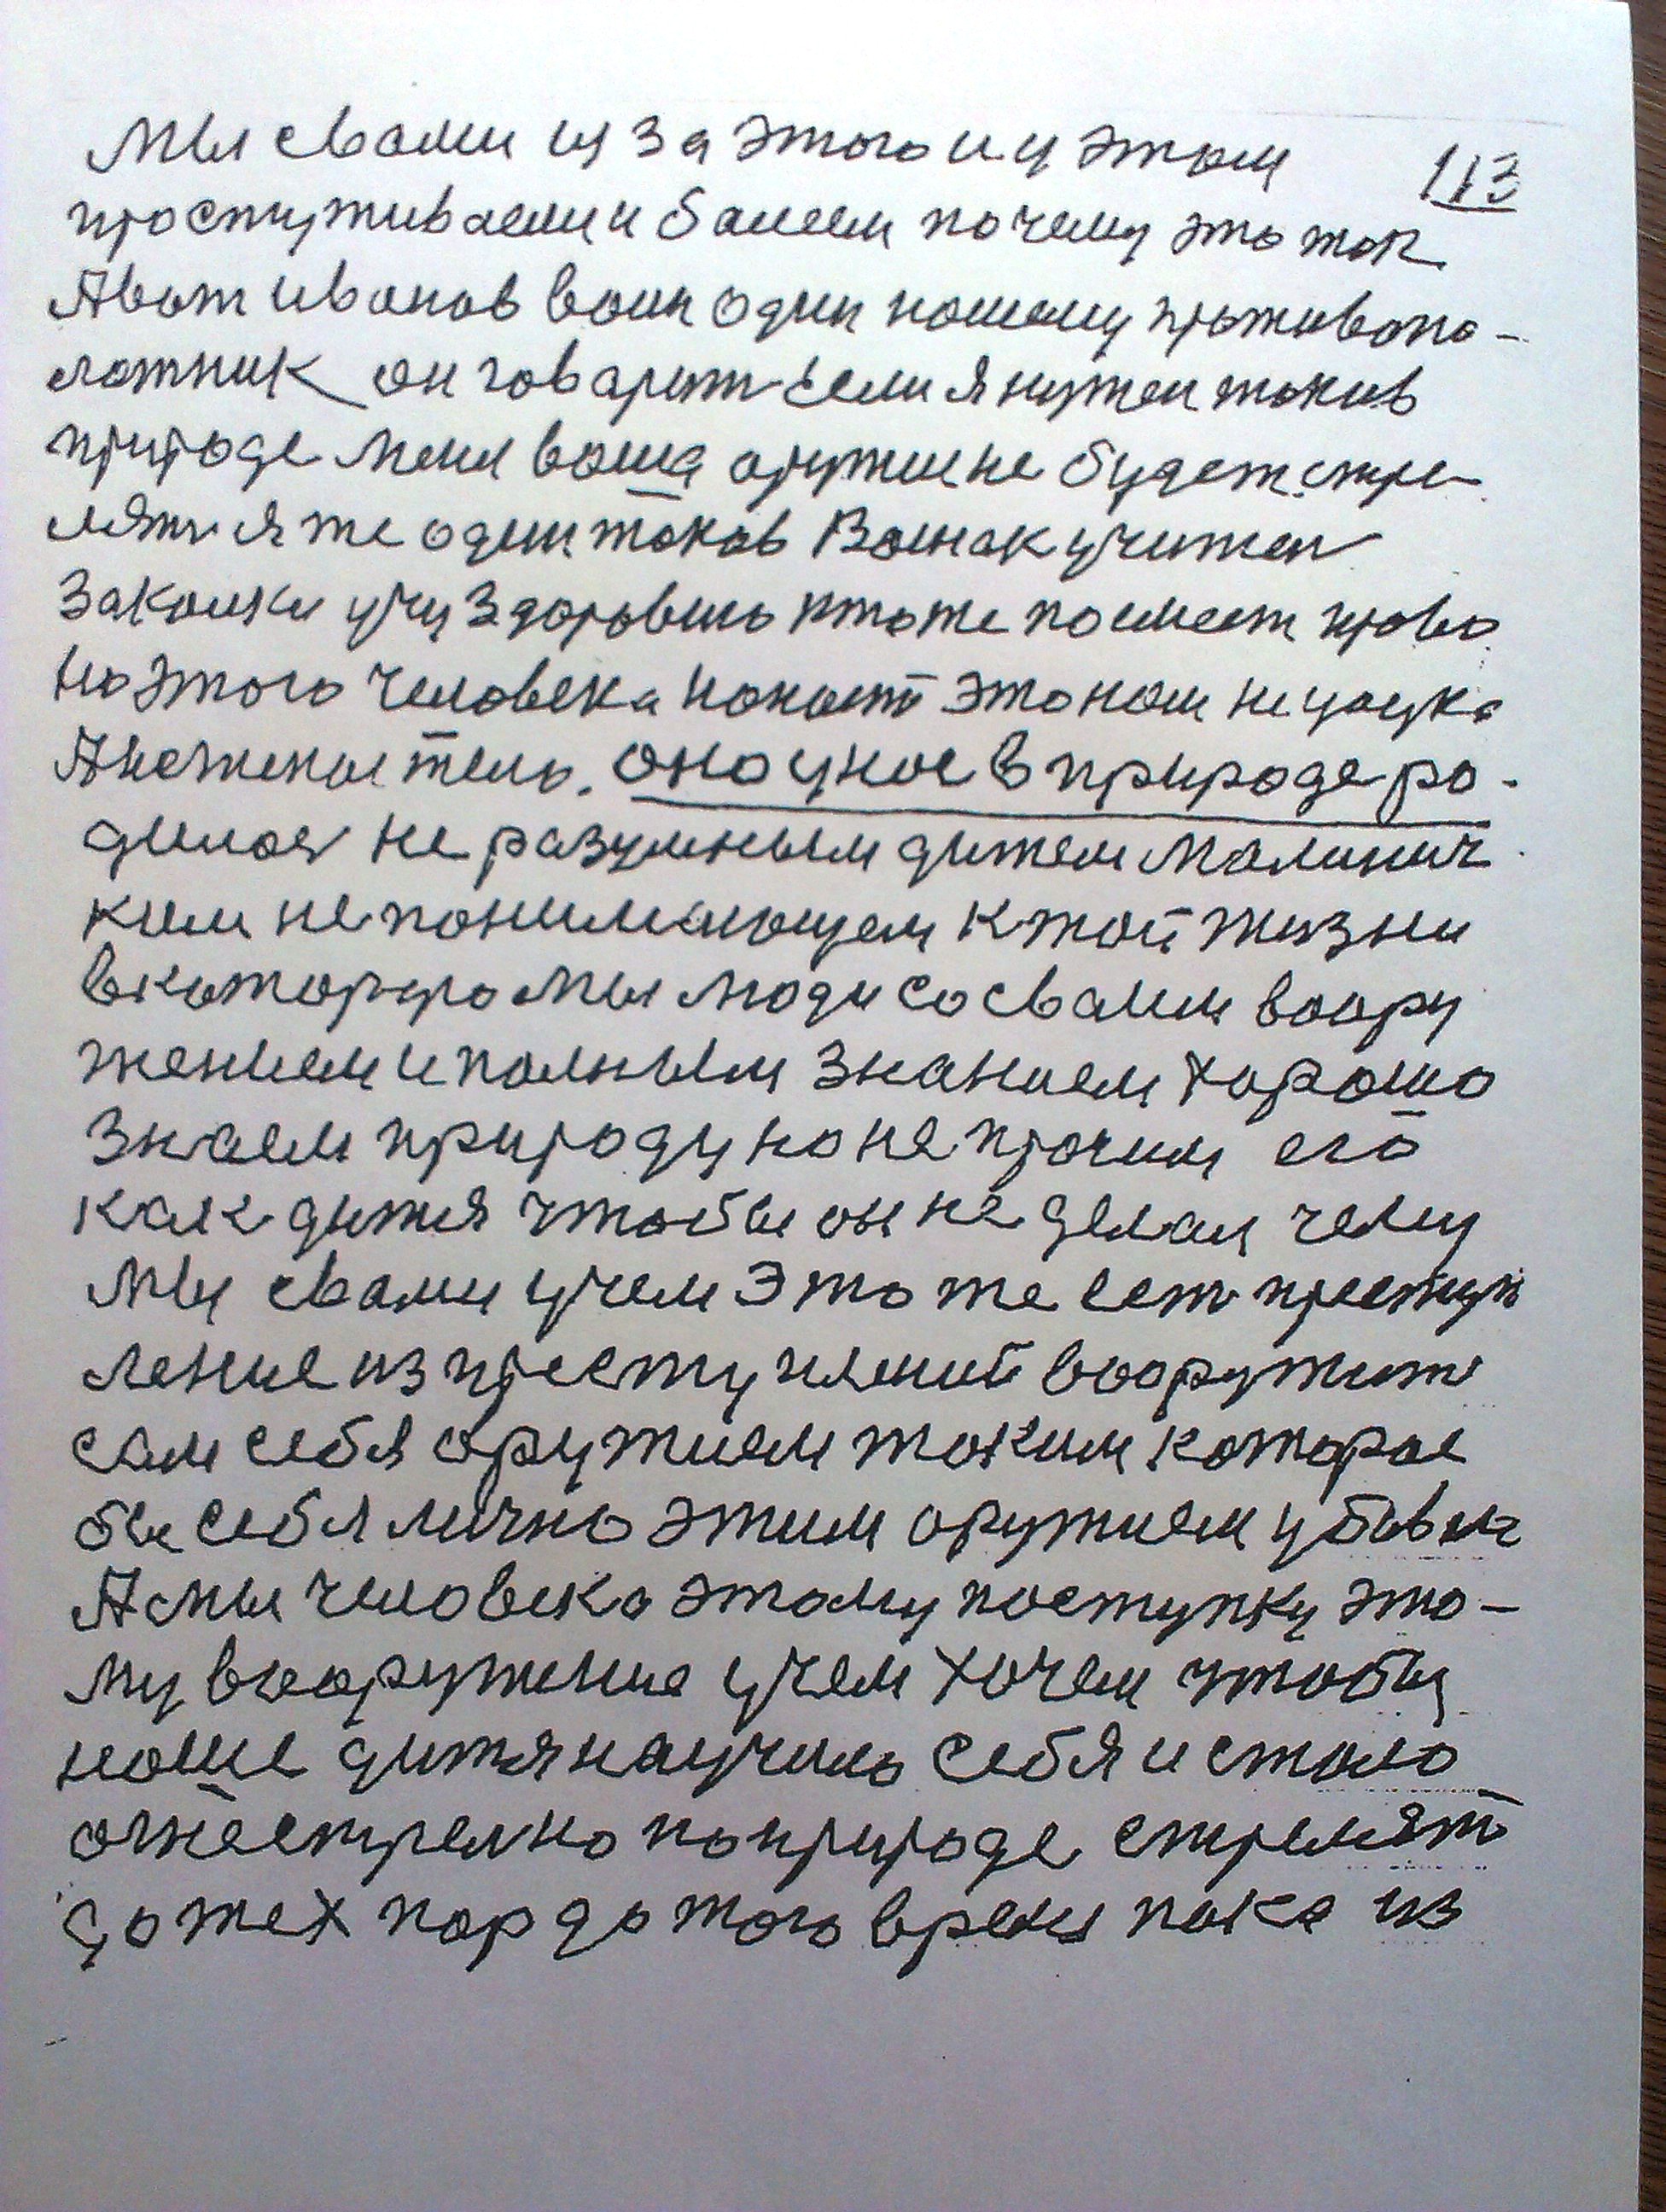 мы свами из за этого и у этом
113
простуживаеми и балеем почему это так
А вот иванов воин один нашему противопо-
ложник он говарит если я нужен таков
природе меня ваша оружие не будет стре-
лять я же один таков Воинак учител
Закалки учу здоровию ктоже поемеет право
на этого человека напасть это нам не наука
А неженое тело. оно у нас в природе ро-
дилося не разумным дитем маленич
ким не понимающем к той жизни
в которую мы люди со свамы воору
жением и полным знанием хорошо
знаем природу но не прочим его
как дитя чтобы он не делал чему
мы свами учем Это же есть преступ
ление из преступлений вооружить
сам себя оружием таким которое
бы себя лично этим оружием убивал
А мы человека этому поступку это-
му вооружение учем хочем чтобы
наше дитя научило себя и стало
огнестрелно по природе стрелят
до тех пор до того время пока из